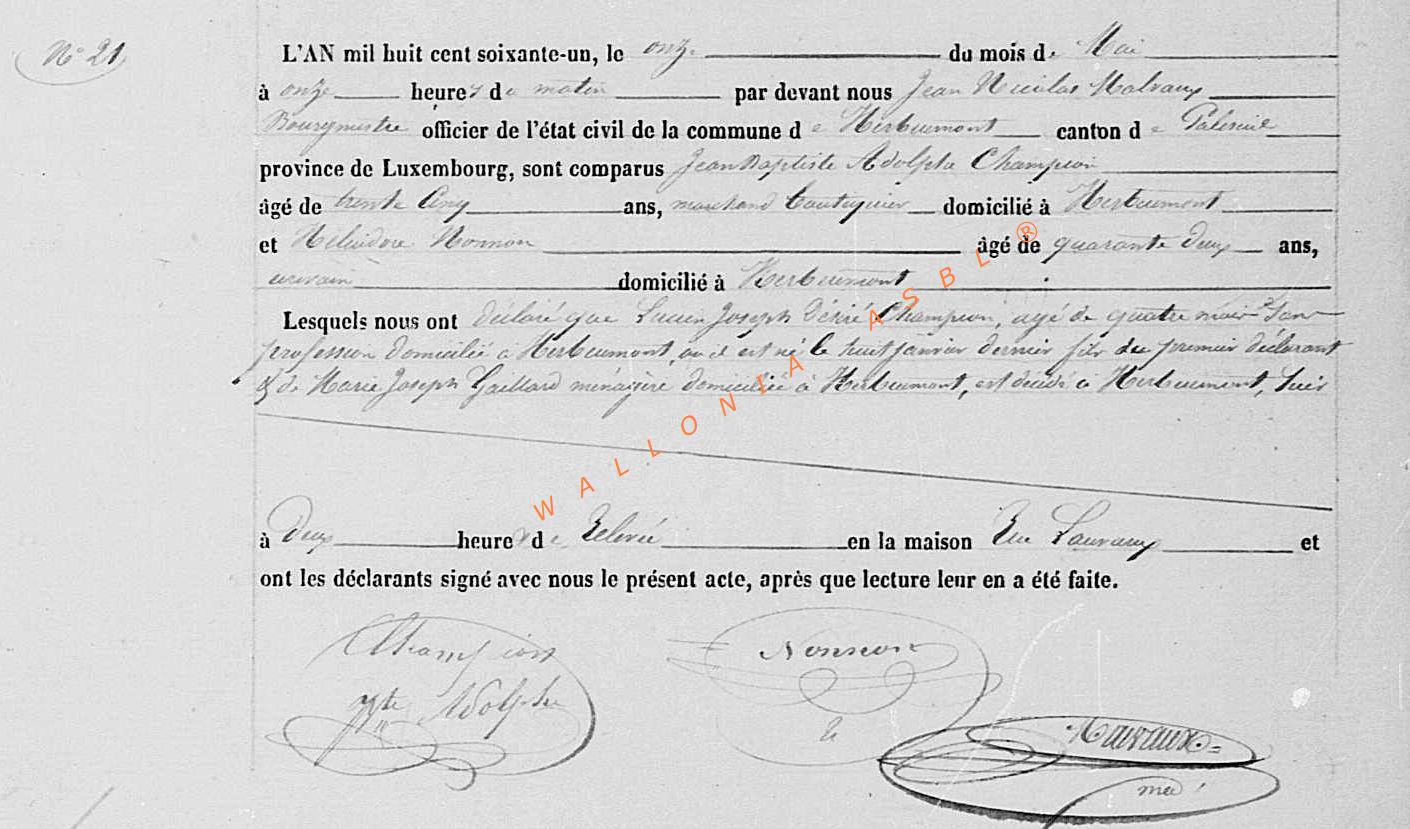 N° 21
L'AN mil huit cent soixante-un, le onze du mois de Mai
à onze heures de matin par devant nous Jean Nicolas Malvaux
Bourgmestre officier de l'état civil de la commune de Herbeumont canton de Paliseul
province de Luxembourg, sont comparus Jean Baptiste Adolphe Champion
âgé de trente cinq ans, marchand boutiquier domicilié à Herbeumont
et Héliodore Nonnon âgé de quarante deux ans,
domicilié à Herbeumont
Lesquels nous ont déclaré que Lucien Joseph Désiré Champion, agé de quatre mois sans
profession domicilié à Herbeumont, où il est né le huit janvier dernier fils du premier déclarant
& de Marie Joseph Gaillard ménagère domiciliée à Herbeumont, est décédé à Herbeumont, hier
à Deux heures de Relevée en la maison et
ont les déclarants signé avec nous le présent acte, après que lecture leur en a été faite.
Champion
Adolphe
Nonnon
WALLONIA ASBL ®